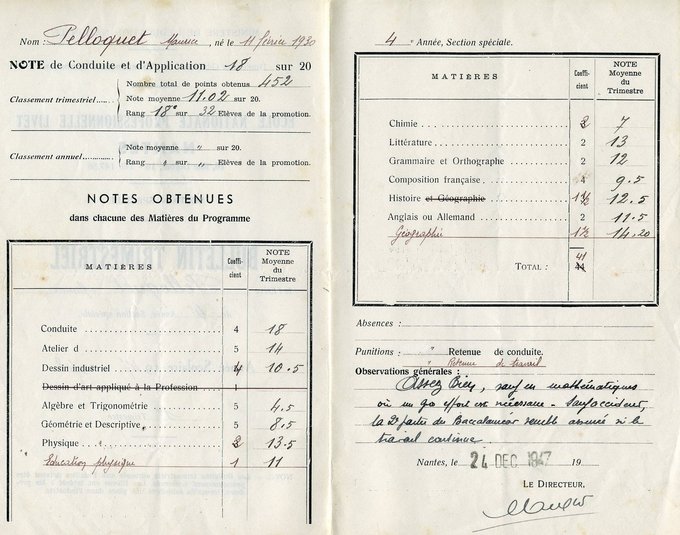 Nom : Pelloquet Maurice, né le 11 février 1930
NOTE de Conduite et d'Application 18 sur 20
Classement trimestriel
Nombre total de points obtenus 452
Note moyenne 11.02 sur 20.
Rang 18e sur 32 Elèves de la promotion.
Classement annuel
Note moyenne " sur 20.
Rang " sur " Elèves de la promotion.
NOTES OBTENUES
dans chacune des Matières du Programme
MATIÈRES Coefficient NOTE Moyenne du Trimestre
Conduite 4 18
Atelier d 5 14
Dessin industriel 4 10.5
Dessin d'art appliqué à la Profession 1
Algèbre et Trigonométrie 5 4.5
Géométrie et Descriptive 5 8.5
Physique " 13.5
Education physique 1 11
4e Année, Section spéciale.
MATIÈRES Coefficient NOTE Moyenne du Trimestre
Chimie 7
Littérature 2 13
Grammaire et Orthographe 2 12
Composition française 4 9.5
Histoire et Géographie 1½ 12.5
Anglais ou Allemand 2 11.5
Géographie 1½ 14.20
TOTAL : 41 44
Absences :
Punitions : " Retenue de conduite.
" Retenue de travail
Observations générales :
Assez bien, sauf en mathématiques
où un gd effort est nécessaire - Sauf accident,
la 2e partie du Baccalauréat semble assurée si le
travail continue
Nantes, le 24 DEC 1947 19
LE DIRECTEUR,